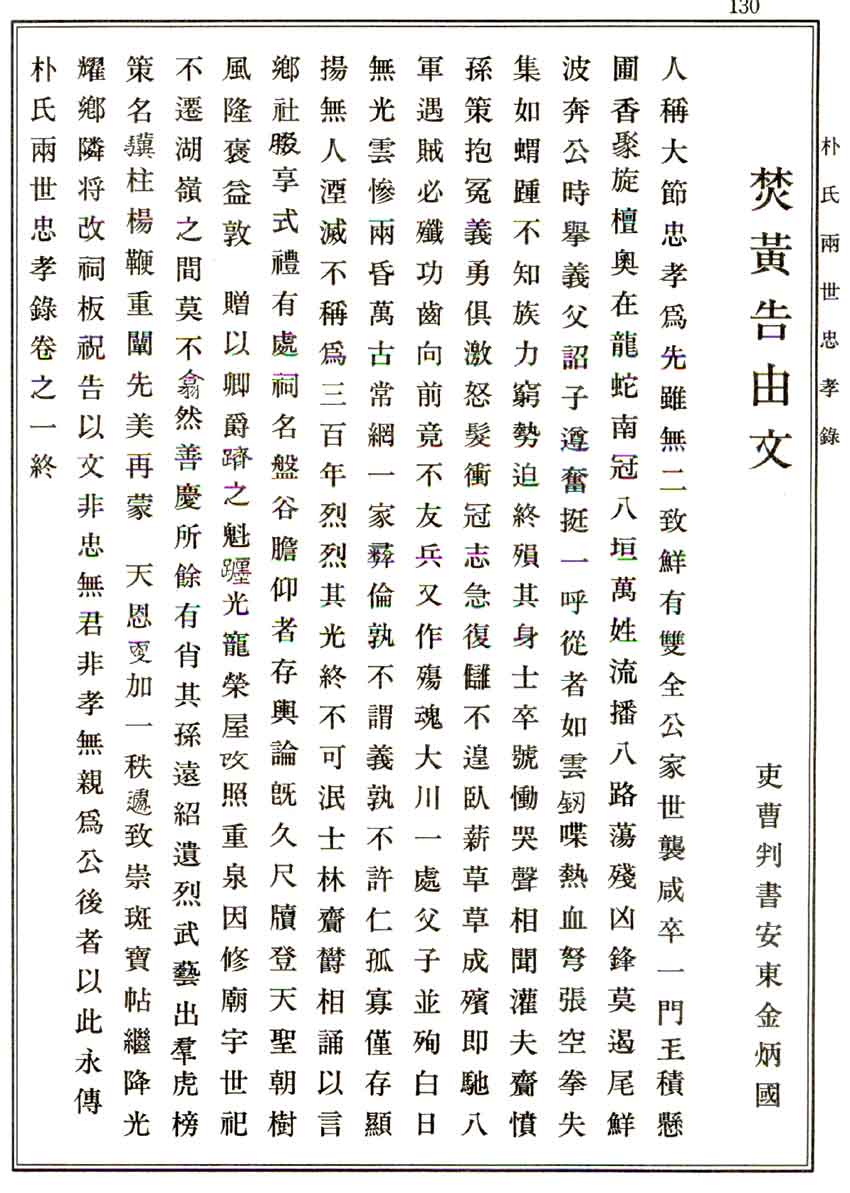 130
朴氏兩世忠孝錄
焚黃告由文
吏曹判書安東金炳國
人稱大節忠孝爲先雖無二致鮮有雙全公家世襲咸卒一門玊積懸
圃香聚旋檀奧在龍蛇南冠八垣萬姓流播八路蕩殘凶鋒莫遏尾鮮
波奔公時擧義父詔子遵奮挺一呼從者如雲釼喋熱血弩張空拳失
集如蝟踵不知族力窮勢迫終殞其身士卒號慟哭聲相聞灌夫齎憤
孫策抱冤義勇俱激怒髮衝冠志急復讎不遑臥薪草草成殯即馳八
軍遇賊必殲功齒向前竟不友兵又作殤魂大川一處父子並殉白日
無光雲慘兩昏萬古常網一家彝倫孰不謂義孰不許仁孤寡僅存顯
揚無人湮滅不稱爲三百年烈烈其光終不可泯士林齎欝相誦以言
鄕社腏享式禮有處祠名盤谷膽仰者存輿論旣久尺牘登天聖朝樹
風隆褒益敦 贈以卿爵躋之魁躔光寵榮屋攺照重泉因修廟宇世祀
不遷湖嶺之間莫不翕然善慶所餘有肖其孫遠紹遺烈武藝出羣虎榜
策名柱楊鞭重闡先美再蒙 天恩加一秩致崇斑寶帖繼降光
耀鄕隣将改祠板祝告以文非忠無君非孝無親爲公後者以此永傳
朴氏兩世忠孝錄卷之一終